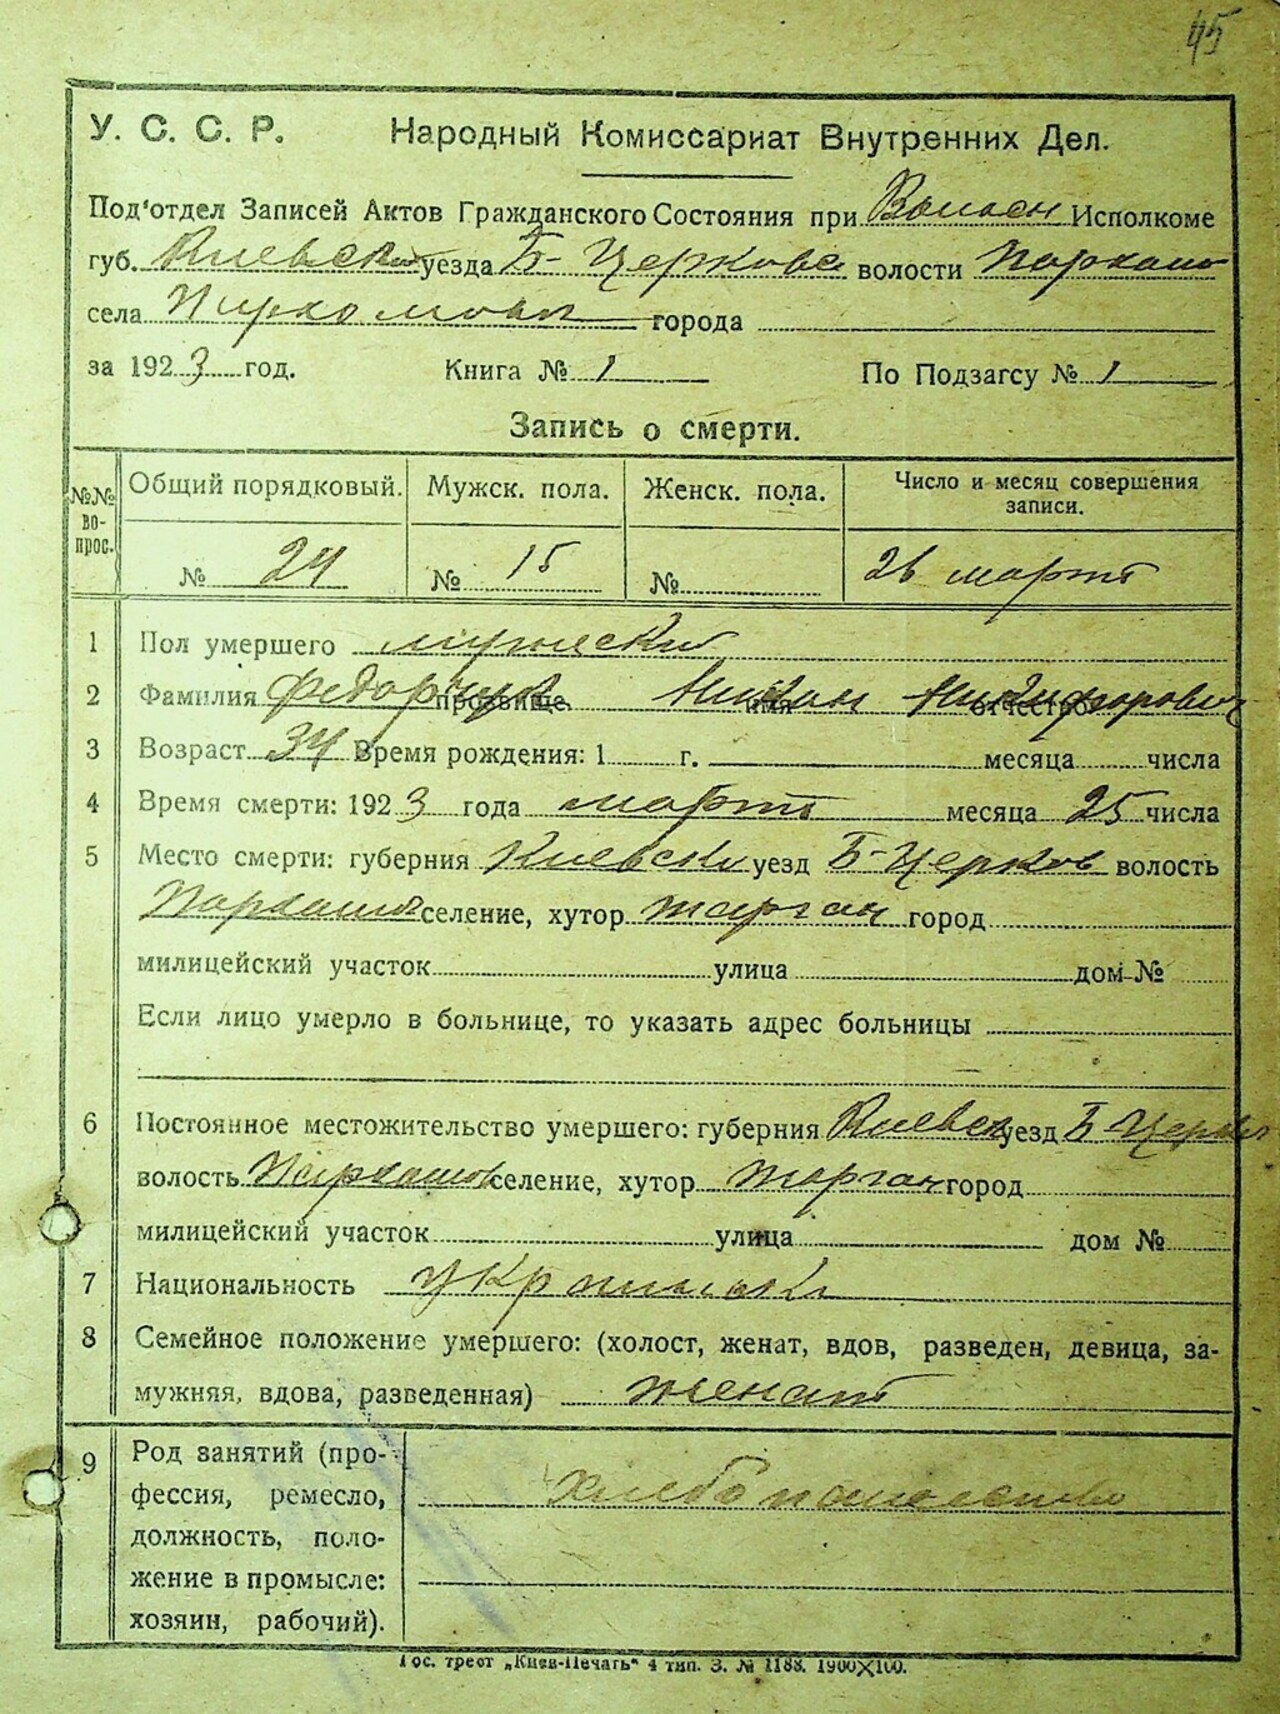 45
У. С. С. Р. Народный Комиссариат Внутренних Дел.
Под'отдел Записей Актов Гражданского Состояния при Волосн Исполкоме
губ. Киевской уезда Б-Церковс волости Пархомо
села Пархомовка города
за 1923 год. Книга № 1 По Подзагсу № 1
Запись о смерти.
№№ во- прос. Общий порядковый. Мужск. пола. Женск. пола. Число и месяц совершения записи.
№ 24 № 15 № 26 марта
1 Пол умершего мужеский
2 Фамилия Федорчук прозвище имя отчество Никифорович
3 Возраст 34 Время рождения: 1 г. месяца числа
4 Время смерти: 1923 года марта месяца 25 числа
5 Место смерти: губерния Киевско уезд Б-Церков волость
Пархомов селение, хутор город
милицейский участок улица дом № 
Если лицо умерло в больнице, то указать адрес больницы
6 Постоянное местожительство умершего: губерния Киевск уезд Б Церков
волость Пархомов селение, хутор город
милицейский участок улица дом №
7 Национальность
8 Семейное положение умершего: (холост, женат, вдов, разведен, девица, за-
мужняя, вдова, разведенная) женат
9 Род занятий (про-
фессия, ремесло, хлебопашество
должность, поло-
жение в промысле:
хозяин, рабочий).
Гос. трест „Киев-Печать" 4 тип. З. № 1188. 1900×100.